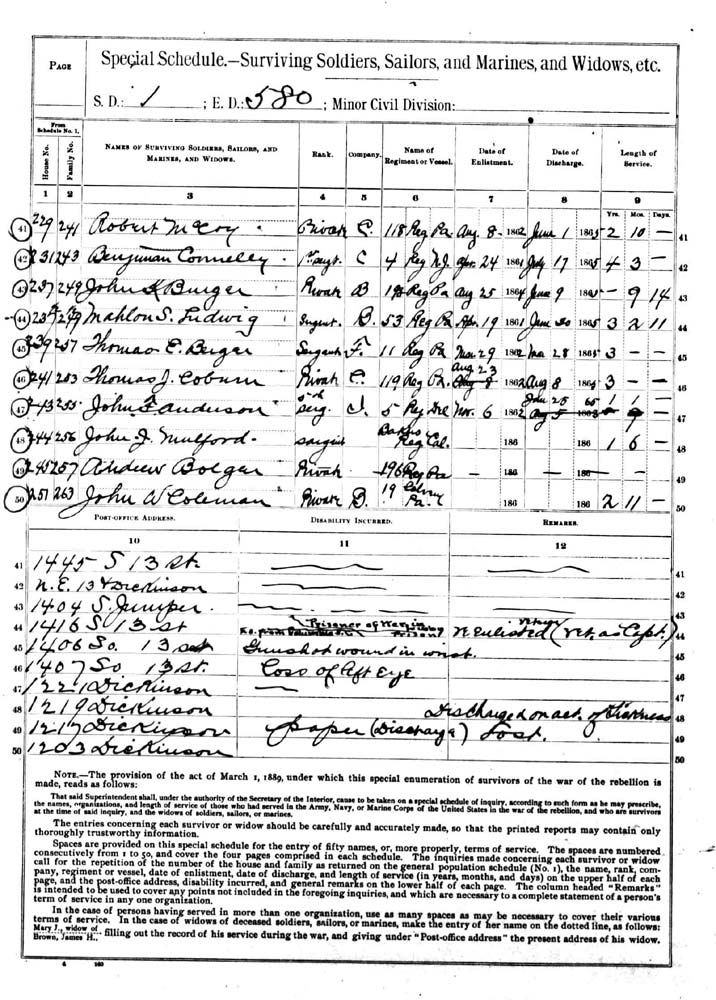 PAGE
Special Schedule.—Surviving Soldiers, Sailors, and Marines, and Widows, etc.
S. D.: 1 ; E. D.: 580 ; Minor Civil Division:
From Schedule No. 1.
House No. Family No. NAMES OF SURVIVING SOLDIERS, SAILORS, AND MARINES, AND WIDOWS. Rank. Company. Name of Regiment or Vessel. Date of Enlistment. Date of Discharge. Length of Service.
1 2 3 4 5 6 7 8 9
Yrs. Mos. Days.
41 229 241 Robert McCoy Privat C. 118 Reg Pa. Aug 8 1862 June 1 1865 2 10 — 41
42 231 243 Benjiman Connelley 1st Sergt. C 4 Reg N.J. Apr. 24 1861 July 17 1865 4 3 — 42
43 237 249 John K Burger Privat B Reg Pa Aug 25 1864 June 9 1865 — 9 14 43
44 Mahlon S. Ludwig Sergent. B. 53 Reg Pa Apr. 19 1861 June 30 1865 3 2 11 44
45 239 257 Thomas C. Berger Sergant F. 11 Reg Pa Mar. 29 1862 Mar 28 1865 3 — — 45
Aug 23
46 241 253 Thomas J. Coburn Privat C. 119 Reg Pa. Aug 8 1862 Aug 8 1865 3 — — 46
Jan 25 65 1 1
47 243 255 John F Anderson Serg. I. 5 Reg Del Nov. 6 1862 Aug 5 1863 — 9 — 47
48 244 256 John J. Mulford Sargint Reg Cal. 186 186 1 6 — 48
49 245 257 Andrew Bolger Privat — 196 Reg Pa — 186 — 186 — — 49
50 251 263 John W Coleman Private B. 19 Calvry Pa. 186 186 2 11 — 50
POST-OFFICE ADDRESS. DISABILITY INCURRED. REMARKS.
10 11 12
41 1445 S 13 St. 41
42 N.E. 13 & Dickinson 42
43 1404 S. Juniper. 43
44 1416 S 13 st Prisoner of War in Prison N Enlisted (ret. as Capt.) 44
45 1406 So. 13 st Gunshot wound in wrist. 45
46 1407 So 13 St. Loss of left Eye 46
47 1221 Dickinson — 47
48 1219 Dickinson Discharged on act. of Sickness 48
49 1217 Dickinson paper (Discharge) Lost. 49
50 1203 Dickinson 50
NOTE.—The provision of the act of March 1, 1889, under which this special enumeration of survivors of the war of the rebellion is
made, reads as follows:
That said Superintendent shall, under the authority of the Secretary of the Interior, cause to be taken on a special schedule of inquiry, according to such form as he may prescribe,
the names, organizations, and length of service of those who had served in the Army, Navy, or Marine Corps of the United States in the war of the rebellion, and who are survivors
at the time of said inquiry, and the widows of soldiers, sailors, or marines.
The entries concerning each survivor or widow should be carefully and accurately made, so that the printed reports may contain only
thoroughly trustworthy information.
Spaces are provided on this special schedule for the entry of fifty names, or, more properly, terms of service. The spaces are numbered
consecutively from 1 to 50, and cover the four pages comprised in each schedule. The inquiries made concerning each survivor or widow
call for the repetition of the number of the house and family as returned on the general population schedule (No. 1), the name, rank, com-
pany, regiment or vessel, date of enlistment, date of discharge, and length of service (in years, months, and days) on the upper half of each
page, and the post-office address, disability incurred, and general remarks on the lower half of each page. The column headed "Remarks"
is intended to be used to cover any points not included in the foregoing inquiries, and which are necessary to a complete statement of a person's
term of service in any one organization.
In the case of persons having served in more than one organization, use as many spaces as may be necessary to cover their various
terms of service. In the case of widows of deceased soldiers, sailors, or marines, make the entry of her name on the dotted line, as follows:
Mary J., widow of
Brown, James H., filling out the record of his service during the war, and giving under "Post-office address" the present address of his widow.